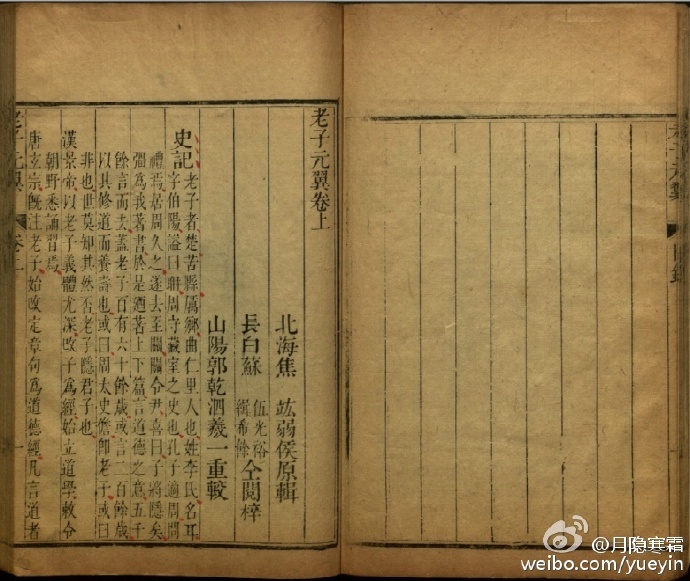 老子元翼卷上
北海焦　竑弱侯原輯
長白蘇　伍光裕　緝希餘　仝閱梓
山陽郭乾泗羲一重較
史記　老子者楚苦縣厲鄉曲仁里人也姓李氏名耳
字伯陽謚曰聃周守藏室之史也孔子適周問
禮焉居周久之遂去至關關令尹喜曰子將隱矣
彊爲我著書於是廼著上下篇言道德之意五千
餘言而去蓋老子百有六十餘歲或言二百餘歲
以其修道而養壽也或曰周太史儋卽老子或曰
非也世莫知其然否老子隱君子也
漢景帝以老子義體尤深改子爲經始立道學敕令
朝野悉諷習焉
唐玄宗旣注老子始改定章句爲道德經凡言道者
老子元翼　卷上　一
@月隐寒霜
weibo.com/yueyin